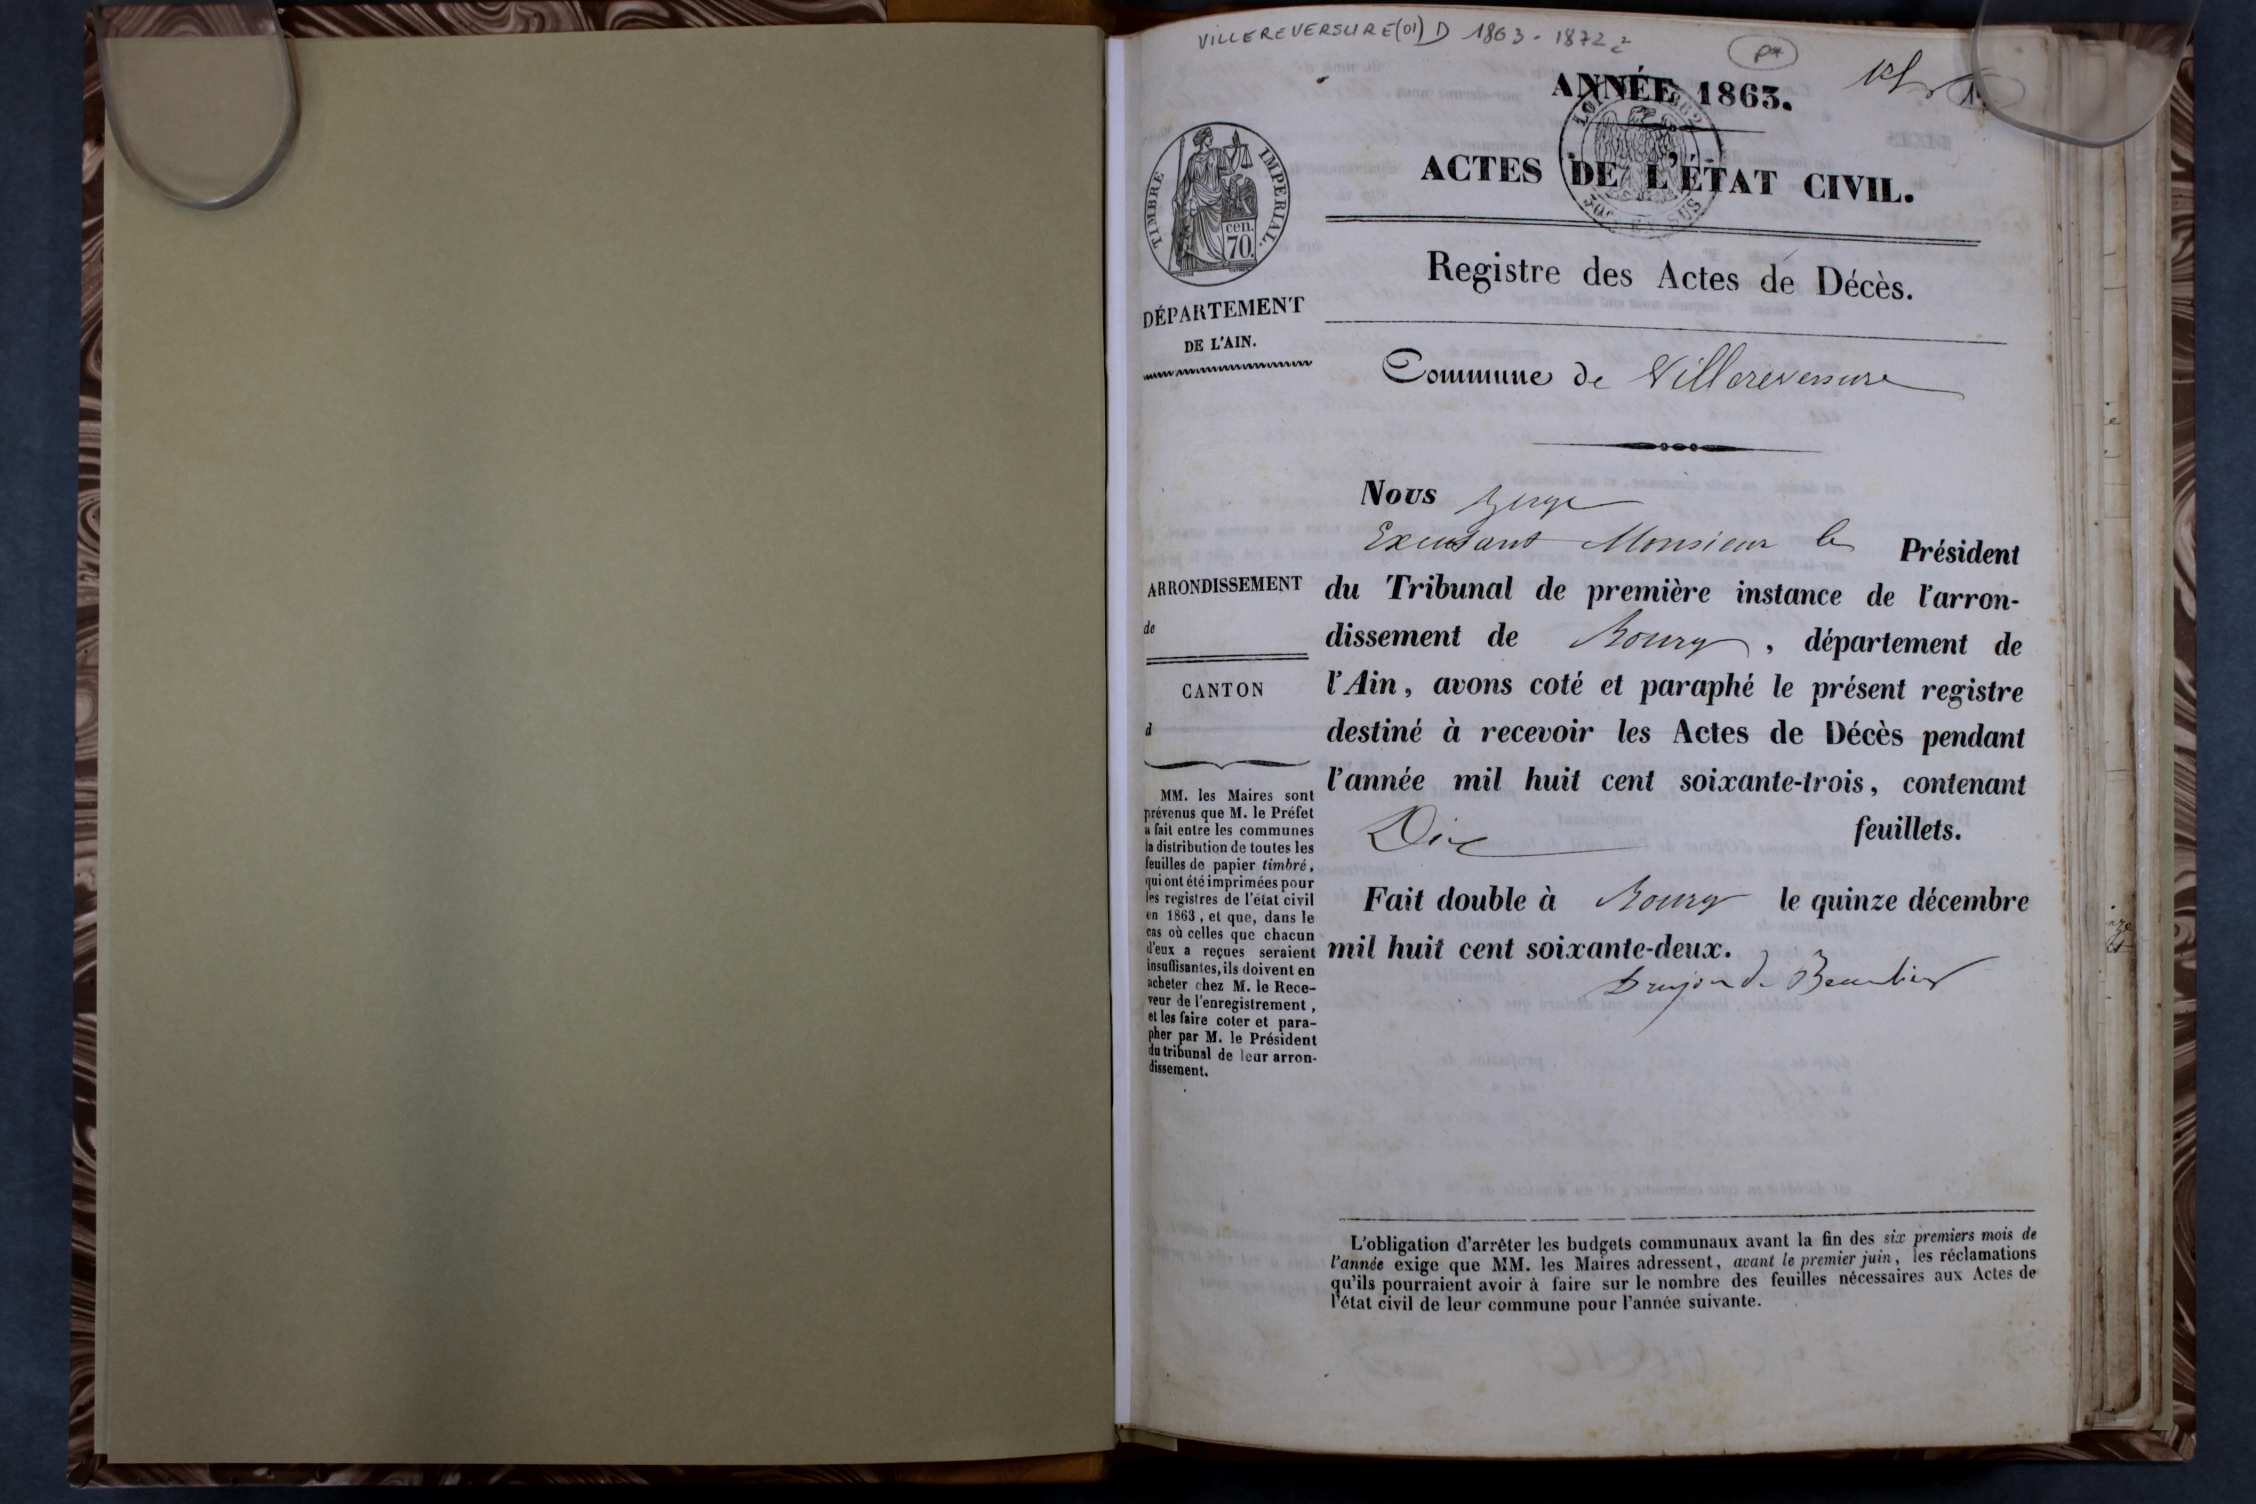 VILLEREVERSURE(01) D 1863 - 1872
ANNÉE 1863.
ACTES DE L'ÉTAT CIVIL.
TIMBRE IMPERIAL.
cen.
70.
DÉPARTEMENT
DE L'AIN.
Registre des Actes de Décès.
Commune de Villereversure
Nous Juge
Excusant Monsieur le Président
du Tribunal de première instance de l'arron-
dissement de Bourg, département de
l'Ain, avons coté et paraphé le présent registre
destiné à recevoir les Actes de Décès pendant
l'année mil huit cent soixante-trois, contenant
Dix feuillets.
Fait double à Bourg le quinze décembre
mil huit cent soixante-deux.
Drujon de Beaulieu
ARRONDISSEMENT
de
CANTON
d
MM. les Maires sont
prévenus que M. le Préfet
a fait entre les communes
la distribution de toutes les
feuilles de papier timbré,
qui ont été imprimées pour
les registres de l'état civil
en 1863, et que, dans le
cas où celles que chacun
d'eux a reçues seraient
insuffisantes, ils doivent en
acheter chez M. le Rece-
veur de l'enregistrement,
et les faire coter et para-
pher par M. le Président
du tribunal de leur arron-
dissement.
L'obligation d'arrêter les budgets communaux avant la fin des six premiers mois de
l'année exige que MM. les Maires adressent, avant le premier juin, les réclamations
qu'ils pourraient avoir à faire sur le nombre des feuilles nécessaires aux Actes de
l'état civil de leur commune pour l'année suivante.